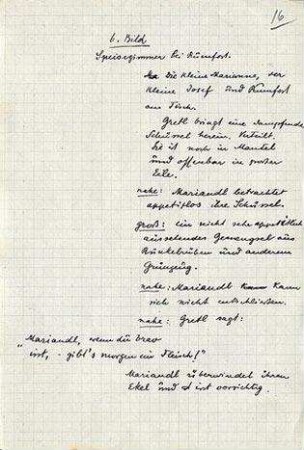 16
6. Bild
Speisezimmer bei Rumfort.
Die kleine Marianne, der
kleine Josef und Rumfort
am Tisch.
Gretl bringt eine dampfende
Schüssel herein. Verteilt.
Sie ist noch in Mantel
und offenbar in großer
Eile.
nahe: Mariandl betrachtet
appetitlos ihre Schüssel.
groß: ein nicht sehr appetitlich
aussehendes Gemengsel aus
Runkelrüben und anderem
Grünzeug.
nahe: Mariandl kann
sich nicht entschließen.
nahe: Gretl sagt:
"Mariandl, wenn du brav
isst, - gibt's morgen ein Fleisch!"
Mariandl überwindet ihren
Ekel und isst vorsichtig.